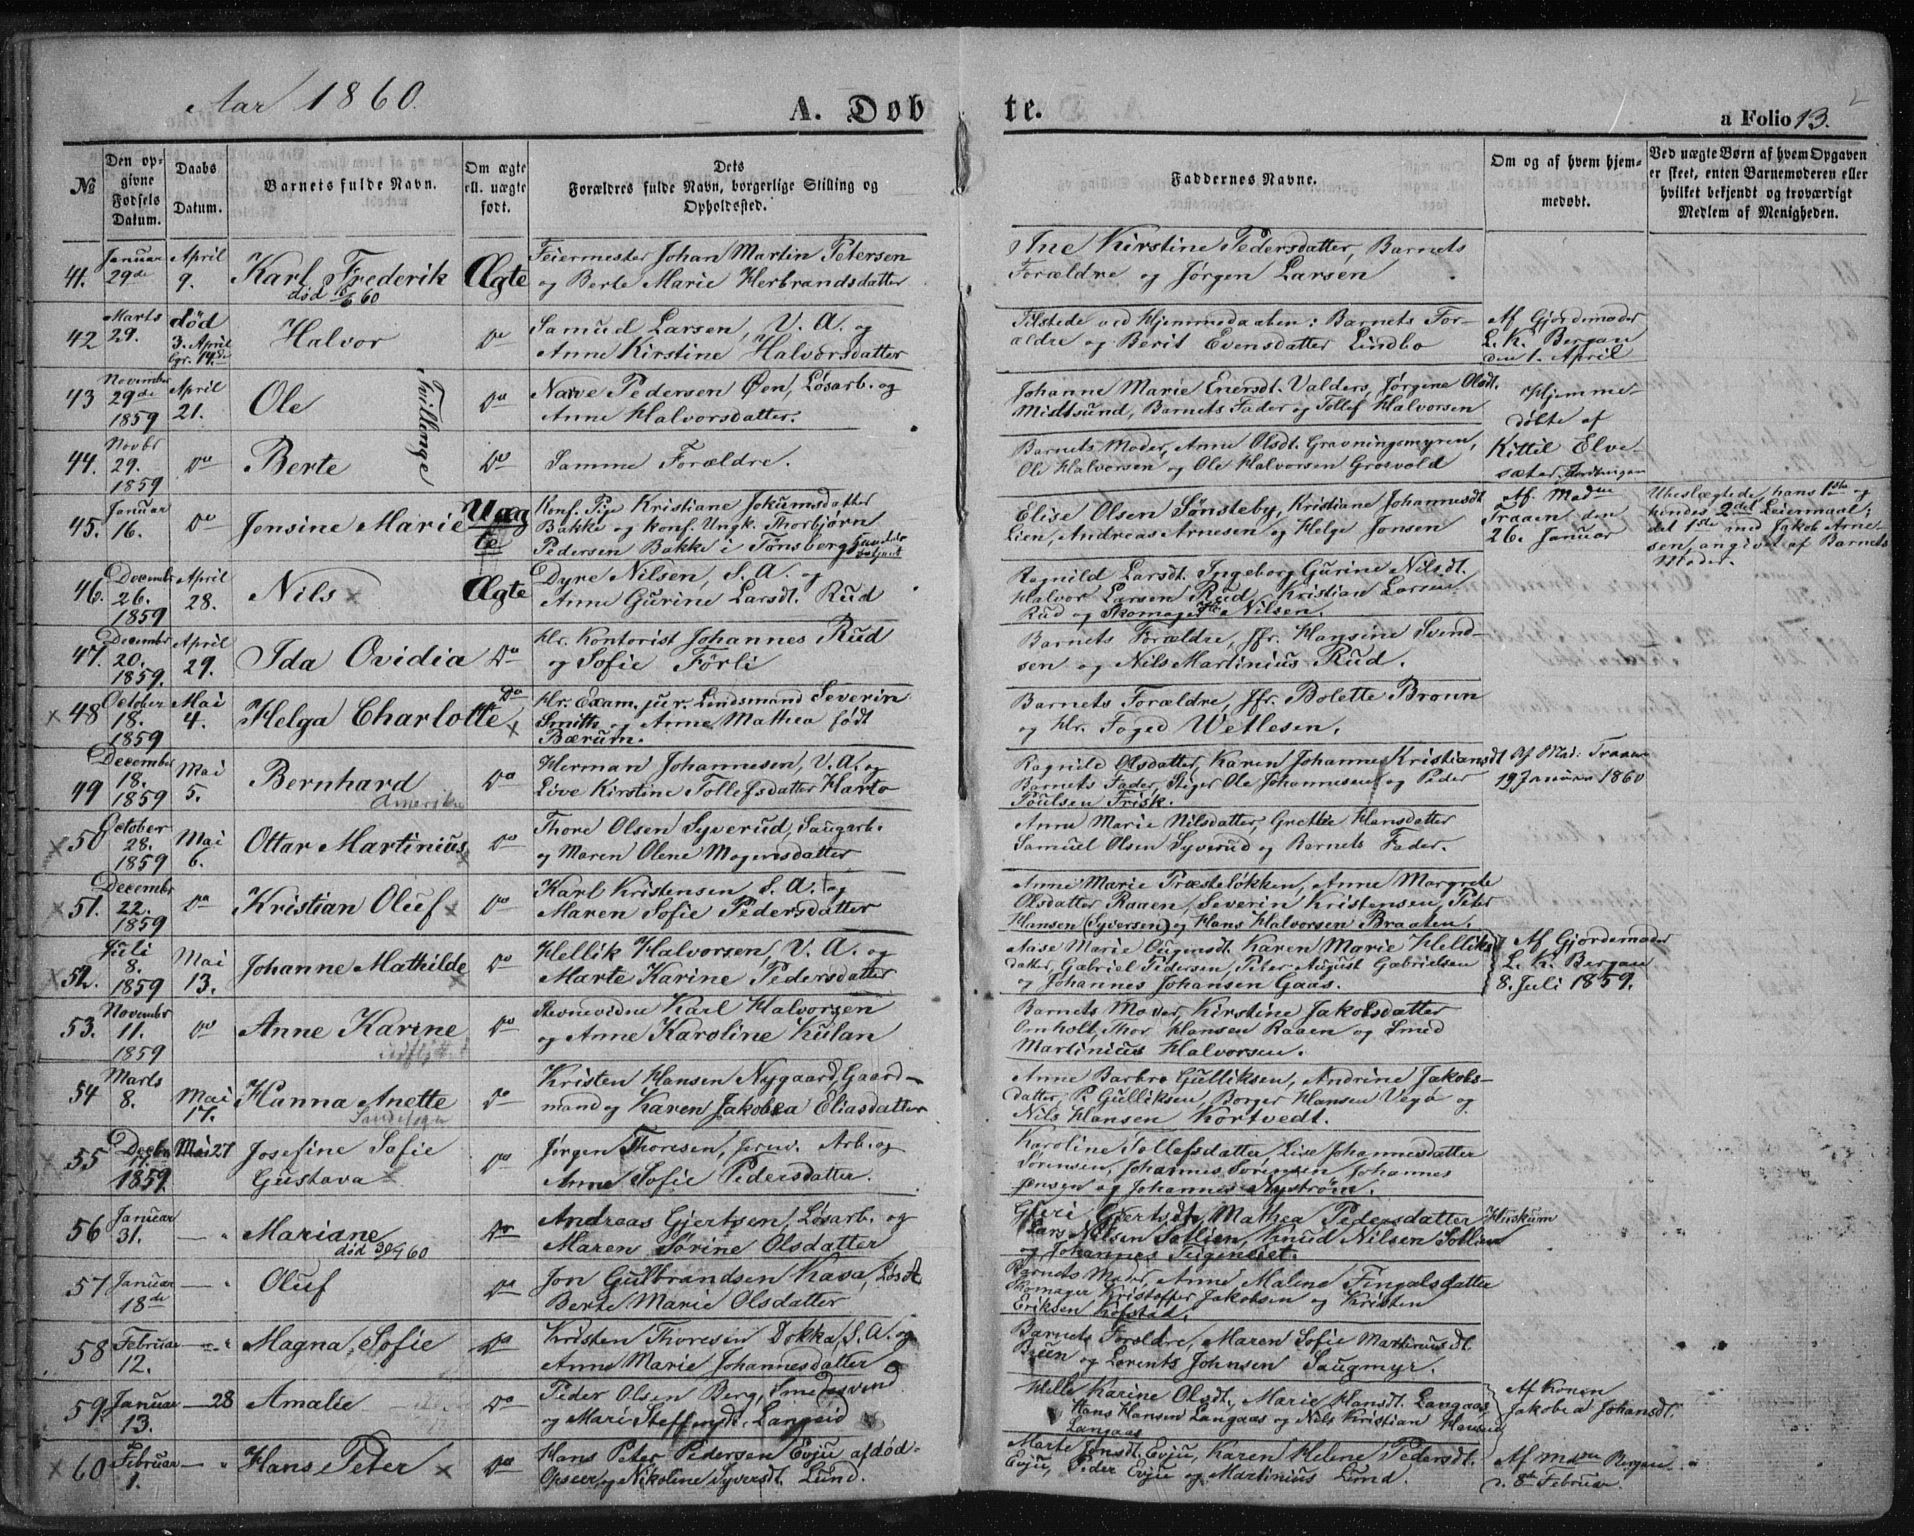 Aar 1860.
A. Døbte.
a Folio 13.
№
Den opgivne Fødsels Datum.
Daabs Datum.
Barnets fulde Navn.
Om ægte ell. uægte født.
Dets Forældres fulde Navn, borgerlige Stilling og Opholdssted.
Faddernes Navne.
Om og af hvem hjemmedøbt.
Ved uægte Børn af hvem Opgaven er skeet, enten Barnemoderen eller hvilket bekjendt og troværdigt Medlem af Menigheden.
41. Januar 29de April 9. Karl Frederik død 16/6 60 Ægte
Feiermester Johan Martin Petersen
og Berte Marie Herbrandsdatter
Ine Kirstine Pedersdatter, Barnets
Forældre og Jørgen Larsen
42 Marts 29. død 3. April bgr. 14de Halvor Do
Samuel Larsen, V. A. og
Anne Kirstine Halvorsdatter
Tilstede ved Hjemmedaaben: Barnets For-
ældre og Berit Evensdatter Lindbo
Af Gjordemoder
L. K. Bergan
den 1. April
43 November 29de 1859 April 21. Ole Tvillinge Do
Narve Pedersen Øen, Løsarb. og
Anne Halvorsdatter.
Johanne Marie Enersdt. Valders, Jørgine Olsdt.
Midtsund, Barnets Fader og Tollef Halvorsen
Hjemme-
døbte af
Kittil Elve-
sæter
44. Novbr 29. 1859 Do Berte Do
Samme Forældre.
Barnets Moder, Anne Olsdt. Gravningsmyren,
Ole Halvorsen og Ole Halvorsen Grosvold
45. Januar 16. Do Jensine Marie Uægte
Konf. Pige Kristiane Jokumsdatter
Bakke og konf. Ungk. Thorbjørn
Pedersen Bakke i Tønsberg
Elise Olsen Sønsteby, Kristiane Johannesdt
Lien, Andreas Arnesen og Helge Jensen
Af Madme
Traaen den
26. Januar
Ubeslægtede, hans 1ste og
hendes 2det Leiermaal;
det 1ste med Jakob Arne-
sen, angivet af Barnets
Moder.
46. Decembr 26. 1859 April 28. Nils x Ægte
Dyre Nilsen, S. A. og
Anne Gurine Larsdt. Rud
Ragnild Larsdt. Ingeborg Gurine Nilsdt.
Halvor Larsen Rud, Kristian Larsen
Rud og Skomager Nilsen.
47. Decembr 20. 1859. April 29. Ida Ovidia Do
Hr. Kontorist Johannes Rud
og Sofie Førli
Barnets Forældre, Jfr. Hansine Svend-
sen og Nils Martinius Rud.
x 48 October 18. 1859 Mai 4. Helga Charlotte x Do
Hr. Exam. jur. Lendsmand Severin
Smitts og Anne Mathea født
Bærum.
Barnets Forældre, Jfr. Bolette Bronn
og Hr. Foged Wetlesen.
49 December 18. 1859 Mai 5. Bernhard Amerika Do
Herman Johannesen, V. A. og
Live Kirstine Tollefsdatter Harto
Ragnild Olsdatter, Karen Johanne Kristiansdt
Barnets Fader, Stiger Ole Johannesen og Peder
Poulsen Frisk.
Af Mad: Traaen
19 Januar 1860
x 50 October 28. 1859 Mai 6. Ottar Martinius x Do
Thore Olsen Syverud, Saugarb.
og Maren Olene Mogensdatter
Anne Marie Nilsdatter, Grethe Hansdatter
Samuel Olsen Syverud og Barnets Fader.
x 51. Decembr 22. 1859 Do Kristian Oluf x Do
Karl Kristensen, S. A. og
Maren Sofie Pedersdatter
Anne Marie Præsteløkken, Anne Margrete
Olsdatter Raaen, Severin Kristensen, Peter
Hansen (Syversen) og Hans Halvorsen Braaten.
x 52. Juli 8. 1859 Mai 13. Johanne Mathilde x Do
Hellik Halvorsen, V. A. og
Marte Karine Pedersdatter
Aase Marie Ougensdt. Karen Marie Helliks-
datter, Gabriel Pedersen, Peter August Gabrielsen
og Johannes Johansen Gaas.
Af Gjordemoder
L. K. Bergan
8. Juli 1859.
53. Novembr 11. 1859 Do Anne Karine Do
Stevnevidne Karl Halvorsen
og Anne Karoline Kulan
Barnets Moder, Kirstine Jakobsdatter
Omholt, Thor Hansen Raaen og Smed
Martinius Halvorsen.
54 Marts 8. Mai 17. Hanna Anette Do
Kristen Hansen Nygaard, Gaard-
mand og Karen Jakobea Eliasdatter
Anne Barbro Gulliksen, Andrine Jakobs-
datter, P. Gulliksen, Borger Hansen Vego og
Nils Hansen Kortvedt.
x 55 Decbr 17. 1859. Mai 27 Josefine Sofie
Gustava x Do
Jørgen Thoresen, Jernv. Arb. og
Anne Sofie Pedersdatter.
Karoline Tollefsdatter, Lise Johannesdatter
Sørensen, Johannes Sørensen, Johannes
Jensen og Johannes Nystrøm.
56 Januar 31. — " Mariane død 30/9 60 Do
Andreas Gjertsen, Løsarb. og
Maren Sørine Olsdatter
Gjertsdt. Mathea Pedersdatter Huskum
Lars Nilsen Sollien, Knud Nilsen Sollien
og Johannes Teigeneiet.
57 Januar 18de — " Oluf Do
Jon Gulbrandsen Kasa, Løsarb.
Berte Marie Olsdatter
Barnets Moder, Anne Malene Fingalsdatter
Skomager Kristoffer Jakobsen og Kristen
Eriksen Kofstad.
58 Februar 12. — " Magna Sofie Do
Kristen Thoresen Dokka, S. A. og
Anne Marie Johannesdatter
Barnets Forældre, Maren Sofie Martiniusdt.
Bien og Lorents Johnsen Saugmyr.
59. Januar 13. — 28 Amalie Do
Peder Olsen Berg, Smedesvend
og Mari Steffensdt. Langeid
Helle Karine Olsdt., Marie Hansdt. Langaas,
Hans Hansen Langaas og Nils Kristian Hansen
Langaas
Af Konen
Jakobea Johansdt.
x 60 Februar 1. — " Hans Peter x Do
Hans Peter Pedersen Evju afdød
Opseer, og Nikoline Syversdt. Lund.
Marte Jønsdt. Evju, Karen Helene Pedersdt.
Evju, Peder Evju og Martinius Lund.
Af Mdme Bergan
d. 8de Februar.